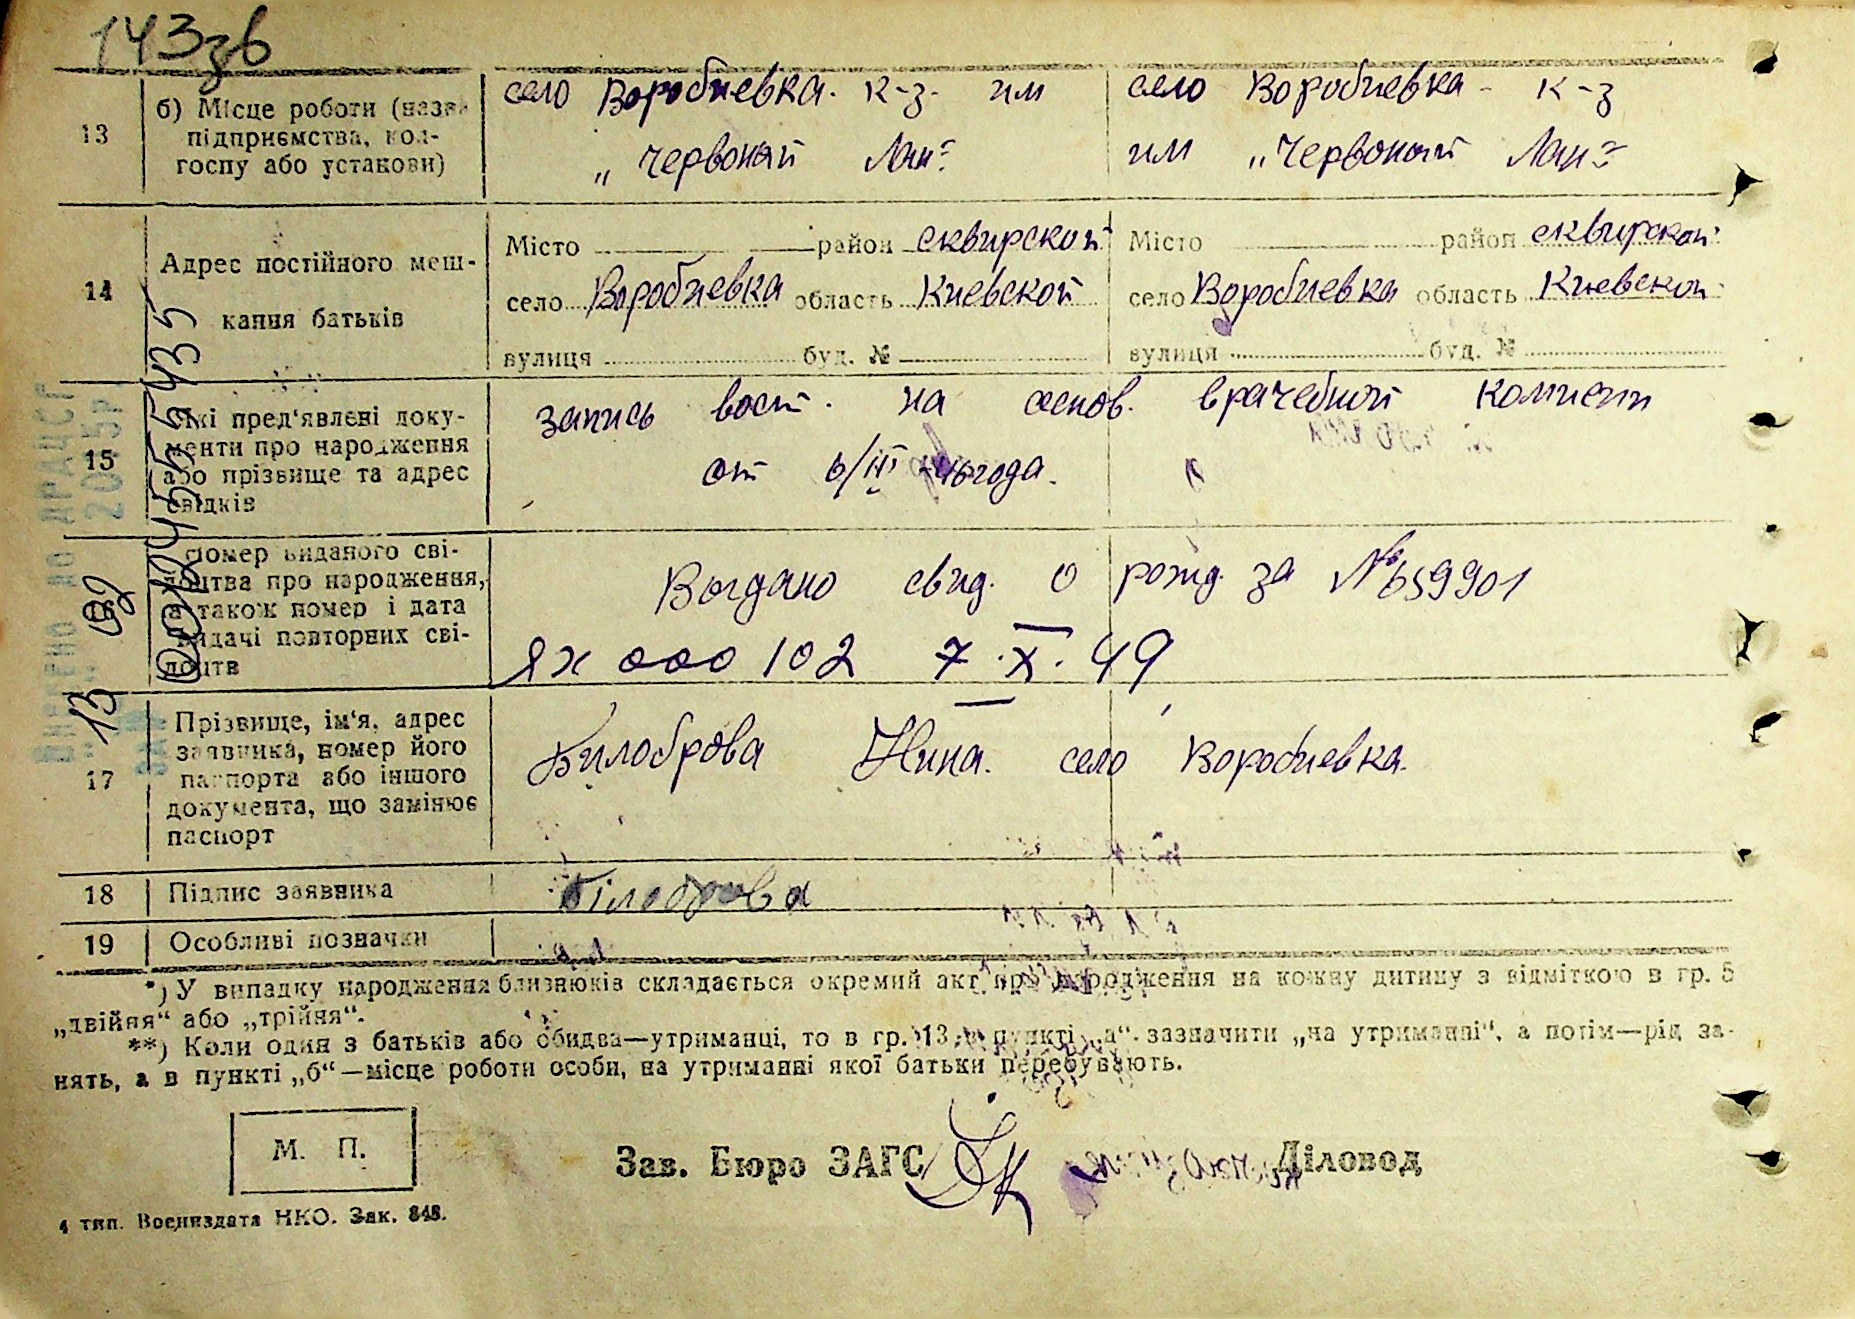 143зв
13
б) Місце роботи (назва
підприємства, кол-
госпу або установи)
село Воробиевка. к-з. им
„Червоный Лан"
село Воробиевка - к-з
им „Червоный Лан"
14
Адрес постійного меш-
кання батьків
Місто район сквирской
село Воробиевка область Киевской
вулиця буд. №
Місто район сквирской
село Воробиевка область Киевской
вулиця буд. №
15
Які пред'явлені доку-
менти про народження
або прізвище та адрес
свідків
запись вост. на основ. врачебной комисии
от 6/III 46 года.
Номер виданого сві-
доцтва про народження,
а також номер і дата
видачі повторних сві-
доцтв
Выдано свид. о рожд. за № 659901
ЯХ 000102 7.X.49
17
Прізвище, ім'я, адрес
заявника, номер його
паспорта або іншого
документа, що замінює
паспорт
Билоброва Нина. село Воробиевка.
18
Підпис заявника
Білоброва
19
Особливі позначки
*) У випадку народження близнюків складається окремий акт про народження на кожну дитину з відміткою в гр. 5
„двійня“ або „трійня“.
**) Коли один з батьків або обидва—утриманці, то в гр. 13 в пункті „а“ зазначити „на утриманні“, а потім—рід за-
нять, а в пункті „б“—місце роботи особи, на утриманні якої батьки перебувають.
М. П.
Зав. Бюро ЗАГС
Діловод
4 тип. Воениздата НКО. Зак. 848.